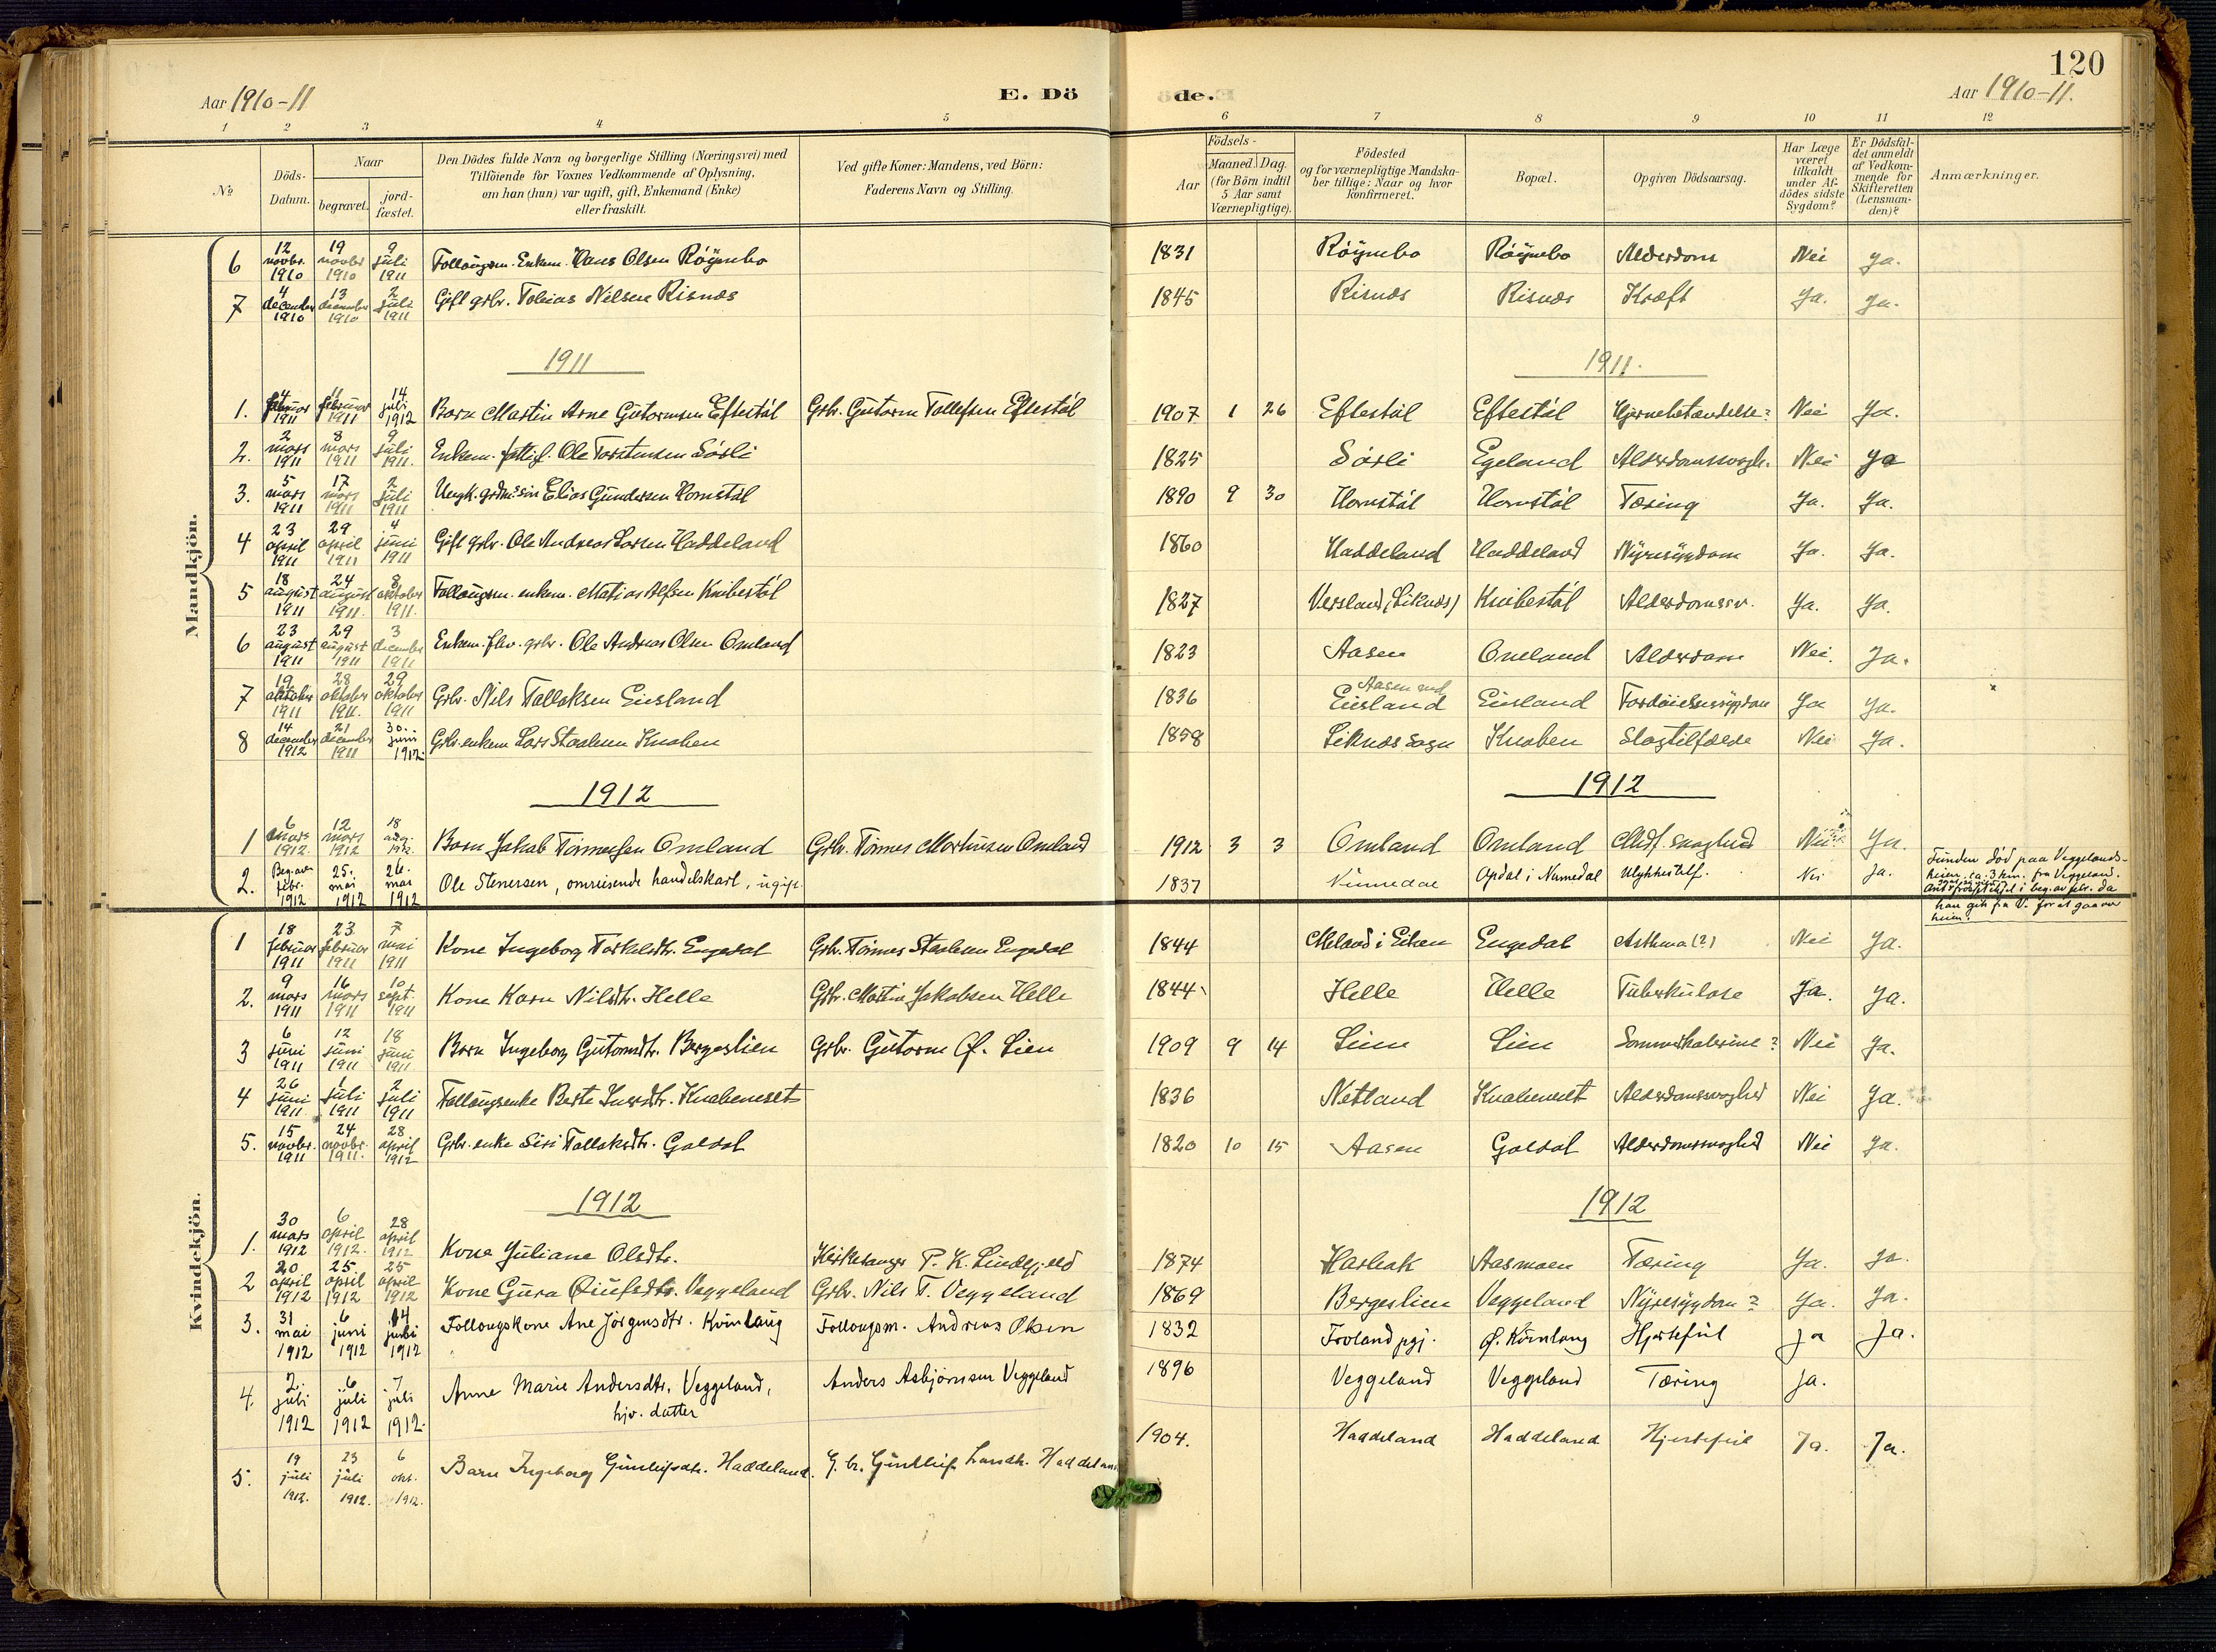 120
Aar 1910-11
E. Dö
de.
Aar 1910-11.
1 2 3 4 5 6 7 8 9 10 11 12
№
Döds-Datum.
Naar
begravet.
jord-fæstet.
Den Dödes fulde Navn og borgerlige Stilling (Næringsvei) med
Tilföiende for Voxnes Vedkommende af Oplysning,
om han (hun) var ugift, gift, Enkemand (Enke)
eller fraskilt.
Ved gifte Koner: Mandens, ved Börn:
Faderens Navn og Stilling.
Födsels-
Aar
Maaned. Dag.
(for Börn indtil
5 Aar samt
Værnepligtige).
Födested
og for værnepligtige Mandska-
ber tillige: Naar og hvor
konfirmeret.
Bopæl.
Opgiven Dödsaarsag.
Har Læge
været
tilkaldt
under Af-
dödes sidste
Sygdom?
Er Dödsfal-
det anmeldt
af Vedkom-
mende for
Skifteretten
(Lensman-
den)?
Anmærkninger.
Mandkjön.
6 12 novbr. 1910 19 novbr 1910 9 juli 1911 Follaugsm. Enkem. Hans Olsen Röynebo 1831 Röynebo Röynebo Alderdom Nei ja.
7 4 december 1910 13 december 1910 2 juli 1911 Gift grbr. Tobias Nilsen Risnes 1845 Risnes Risnes Kræft Ja. Ja.
1911 1911.
1. 4 februar 1911 11 februar 1911 14 juli 1912 Barn Martin Arne Gutormsen Eftestöl Grbr. Gutorm Tollefsen Eftestöl 1907 1 26 Eftestöl Eftestöl Hjernebetændelse? Nei Ja.
2. 2 mars 1911 8 mars 1911 9 juli 1911. Enkem. fattigl. Ole Torstensen Sörli 1825 Sörli Egeland Alderdomssvagh. Nei Ja
3. 5 mars 1911 17 mars 1911 2 juli 1911 Ungk. grdm. sön Elias Gundersen Homstöl 1890 9 30 Homstöl Homstöl Tæring Ja. Ja.
4 23 april 1911 29 april 1911 4 juni 1911 Gift grbr. Ole Andreas Larsen Haddeland 1860 Haddeland Haddeland Nyresygdom Ja. Ja.
5 18 august 1911 24 august 1911. 8 oktober 1911. Follaugsm. enkem. Matias Alfsen Knibestöl 1827 Versland (Liknes) Knibestöl Alderdomssv. Ja. Ja.
6 23 august 1911 29 august 1911 3 december 1911 Enkem. fhv. grbr. Ole Andreas Olsen Omland 1823 Aasen Omland Alderdom Nei. Ja.
7 19 oktober 1911 28 oktober 1911. 29 oktober 1911 Grbr. Nils Tallaksen Eiesland 1836 Aasen ved Eiesland Eiesland Fordöielsessygdom Ja Ja.
8 14 december 1912 21 december 1911 30. juni 1912. Grbr. enkem Lars Staalesen Knaben 1858 Liknes Sogn Knaben Slagtilfælde Nei Ja.
1912 1912
1 6 mars 1912. 12 mars 1912 18 aug. 1912. Barn Jakob Tönnessen Omland Grbr. Tönnes Martinsen Omland 1912 3 3 Omland Omland Medf. svaghed Nei Ja.
2. Beg. av febr. 1912 25. mai 1912 26. mai 1912 Ole Stenersen, omreisende handelskarl, ugift. 1837 Numedal Opdal i Numedal Ulykkestilf. Nei Ja.
Funden död paa Veggelands-
heien, ca. 3 km. fra Veggeland.
i beg. av febr. da
han gik fra V. for at gaa over
heien.
Kvindekjön.
1 18 februar 1911 23 februar 1911 7 mai 1911 Kone Ingeborg Torkelsdtr. Engedal Grbr. Tönnes Staalesen Engedal 1844 Meland i Eiken Engedal Asthma (?) Nei Ja.
2. 9 mars 1911 16 mars 1911 10 sept. 1911 Kone Karn Nilsdtr. Helle Grbr. Martin Jakobsen Helle 1844 Helle Helle Tuberkulose Ja. Ja.
3 6 juni 1911 12 juni 1911 18 juni 1911 Barn Ingeborg Gutormdtr. Bergeslien Grbr. Gutorm Lien 1909 9 14 Lien Lien Sommerkolerine? Nei Ja.
4 26 juni 1911. 1 juli 1911 2 juli 1911 Follaugsenke Berte Knabeneset 1836 Netland Knabeneset Alderdomssvaghed Nei Ja.
5. 15 novbr. 1911 24 novbr. 1911. 28 april 1912 Grbr. enke Siri Tallaksdtr. Galdal 1820 10 15 Aasen Galdal Alderdomssvaghed Nei Ja.
1912 1912
1. 30 mars 1912 6 april 1912. 28 april 1912 Kone Juliane Olsdtr. Kirkesanger P. K. Lindefjeld 1874 Harbak Aasmoen Tæring Ja. Ja.
2 20 april 1912 25 april 1912 25 april 1912 Kone Gura Veggeland Grbr. Nils T. Veggeland 1869 Bergeslien Veggeland Nyresygdom? Ja. Ja.
3. 31 mai 1912 6 juni 1912 14 juli 1912 Follougskone Ane Jörgensdtr. Kvinlaug Follougsm. Andreas Olsen 1832 Froland pgj. Ö. Kvinlaug Hjertefeil Ja Ja.
4. 2. juli 1912 6 juli 1912 7 juli 1912. Anne Marie Andersdtr. Veggeland, Anders Asbjörnsen Veggeland 1896 Veggeland Veggeland Tæring Ja.
hjv. datter
5. 19 juli 1912. 23 juli 1912. 6 okt. 1912. Barn Ingeborg Gunleifsdtr. Haddeland. G. br. Gunleif Haddeland 1904. Haddeland Haddeland Hjertefeil Ja. Ja.